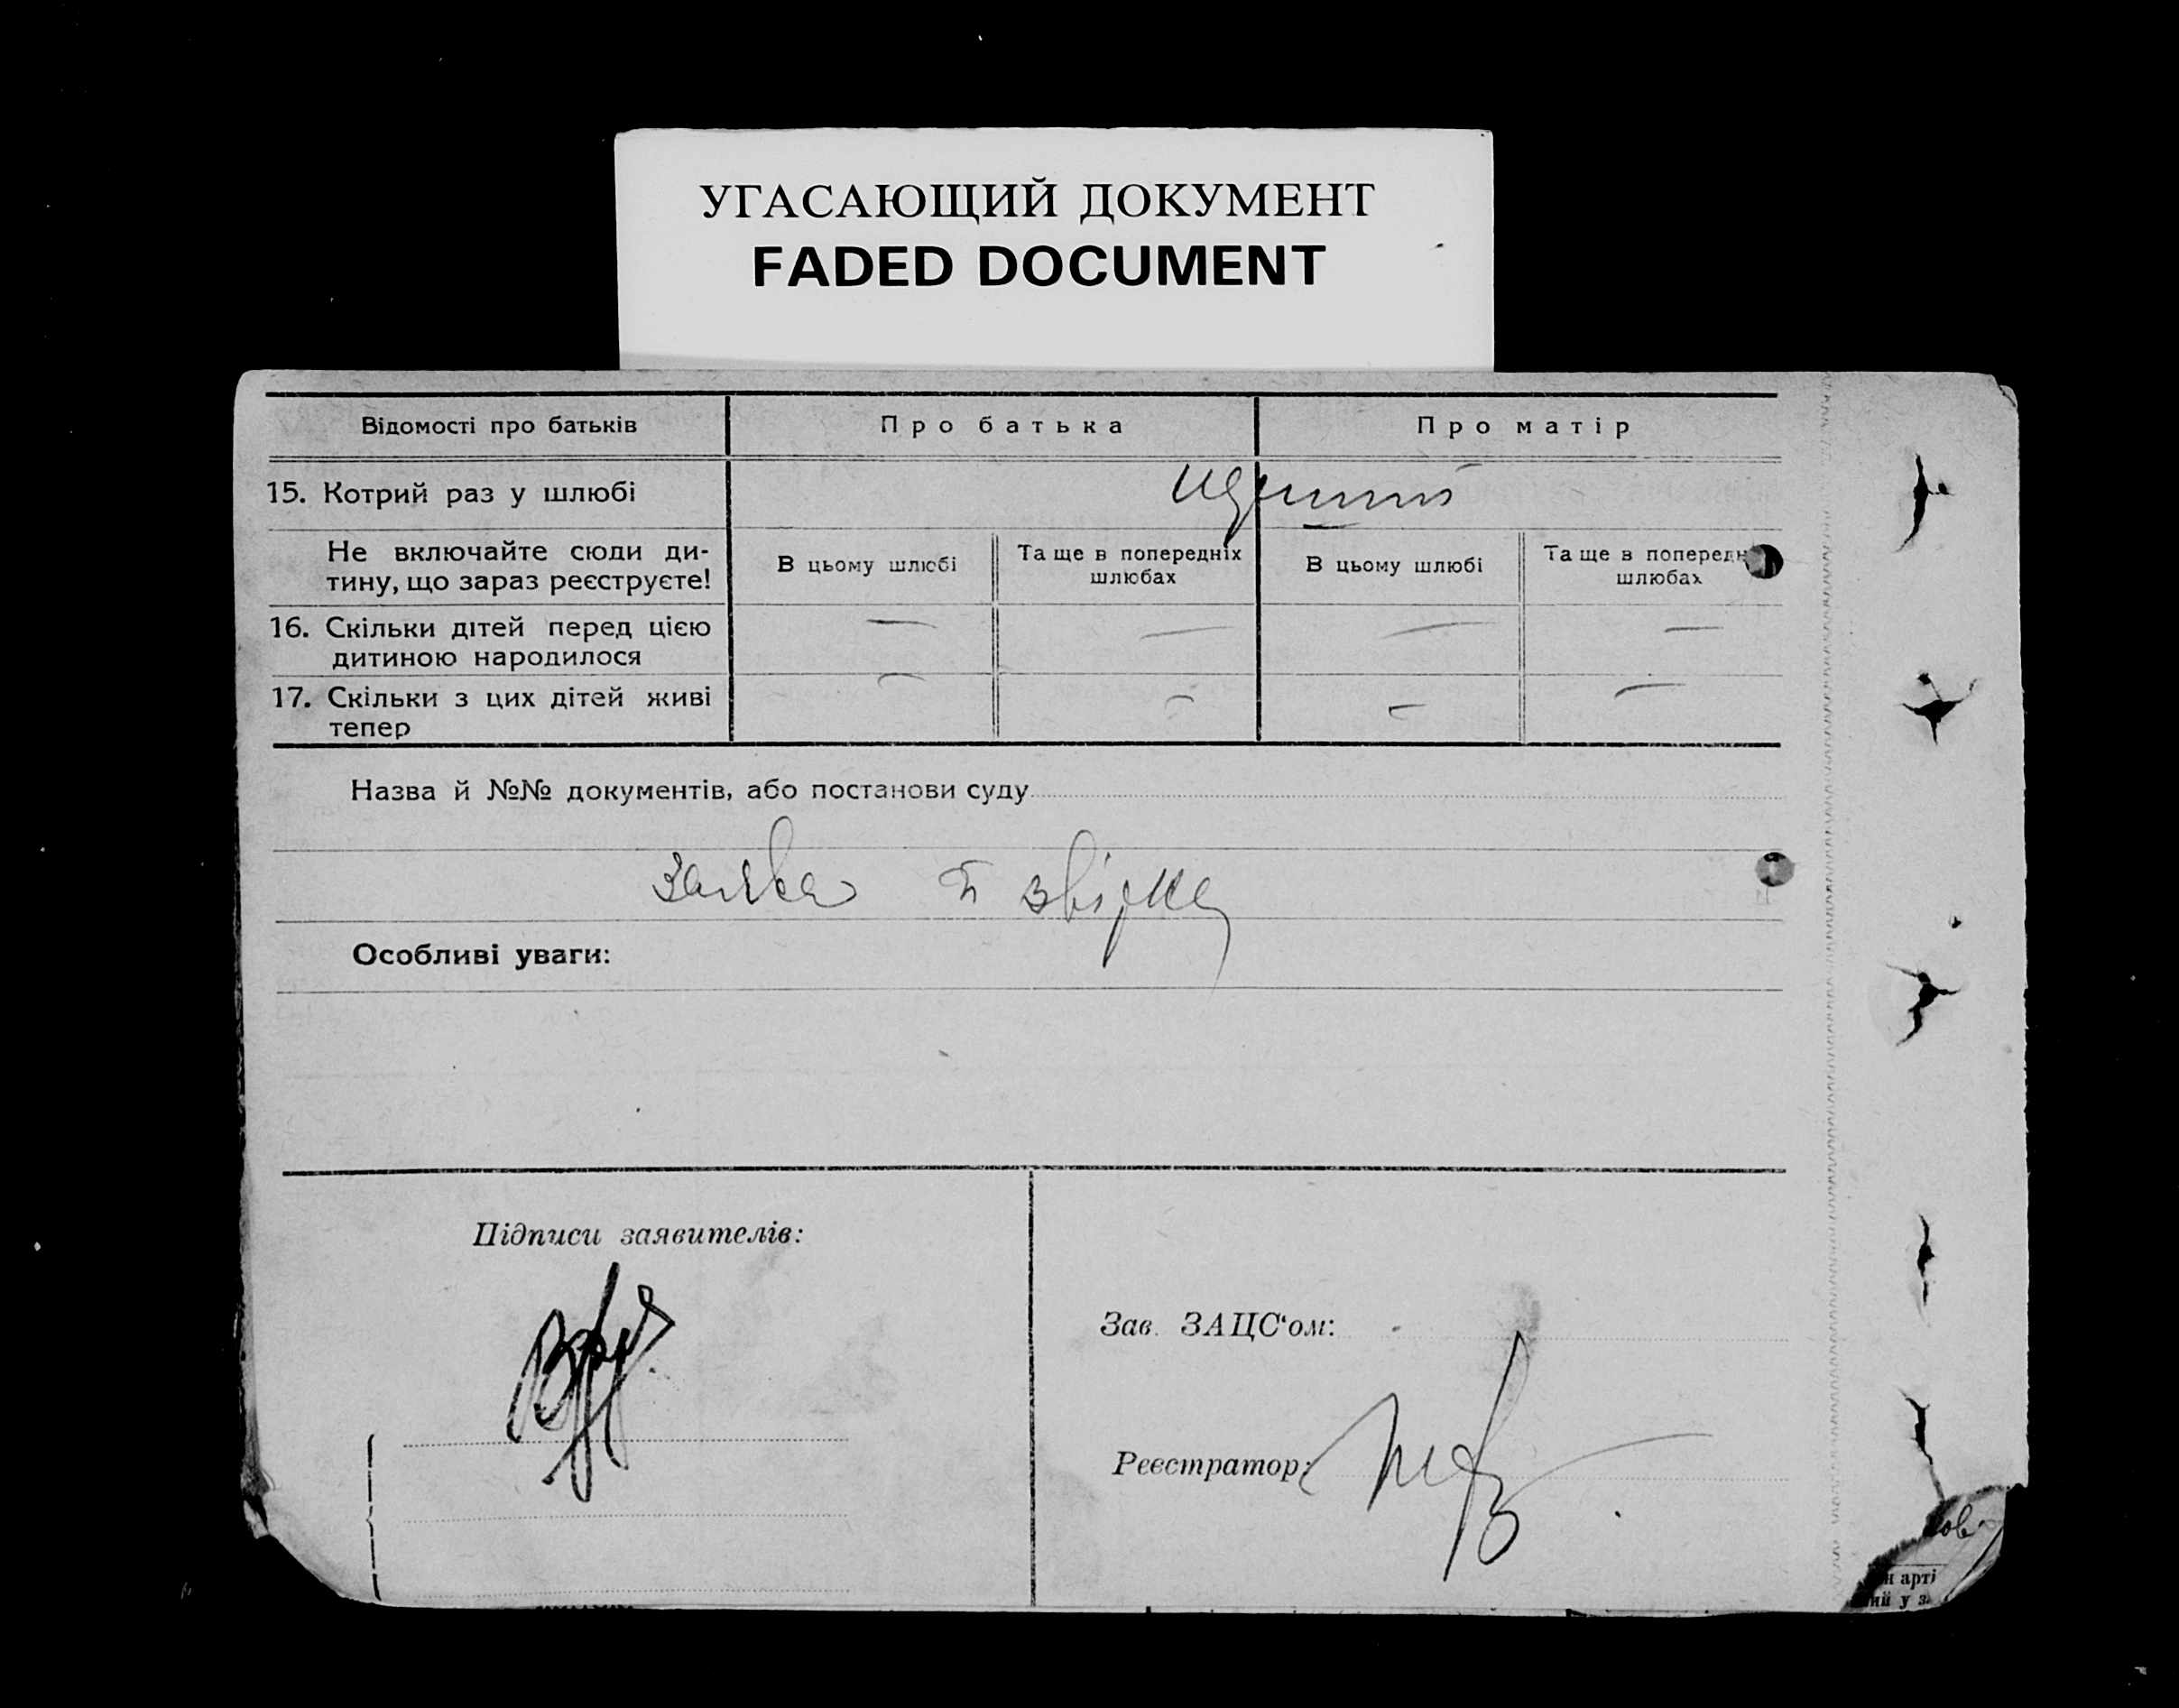 УГАСАЮЩИЙ ДОКУМЕНТ
FADED DOCUMENT
Відомості про батьків
Про батька
Про матір
15. Котрий раз у шлюбі
Не включайте сюди ди-
тину, що зараз реєструєте!
В цьому шлюбі
Та ще в попередніх
шлюбах
В цьому шлюбі
Та ще в попередн
шлюбах
16. Скільки дітей перед цією
дитиною народилося
— — — —
17. Скільки з цих дітей живі
тепер
— — — —
Назва й №№ документів, або постанови суду
заява
Особливі уваги:
Підписи заявителів:
Зав. ЗАЦС‘ом:
Реєстратор:
ов
н арті
ий у з